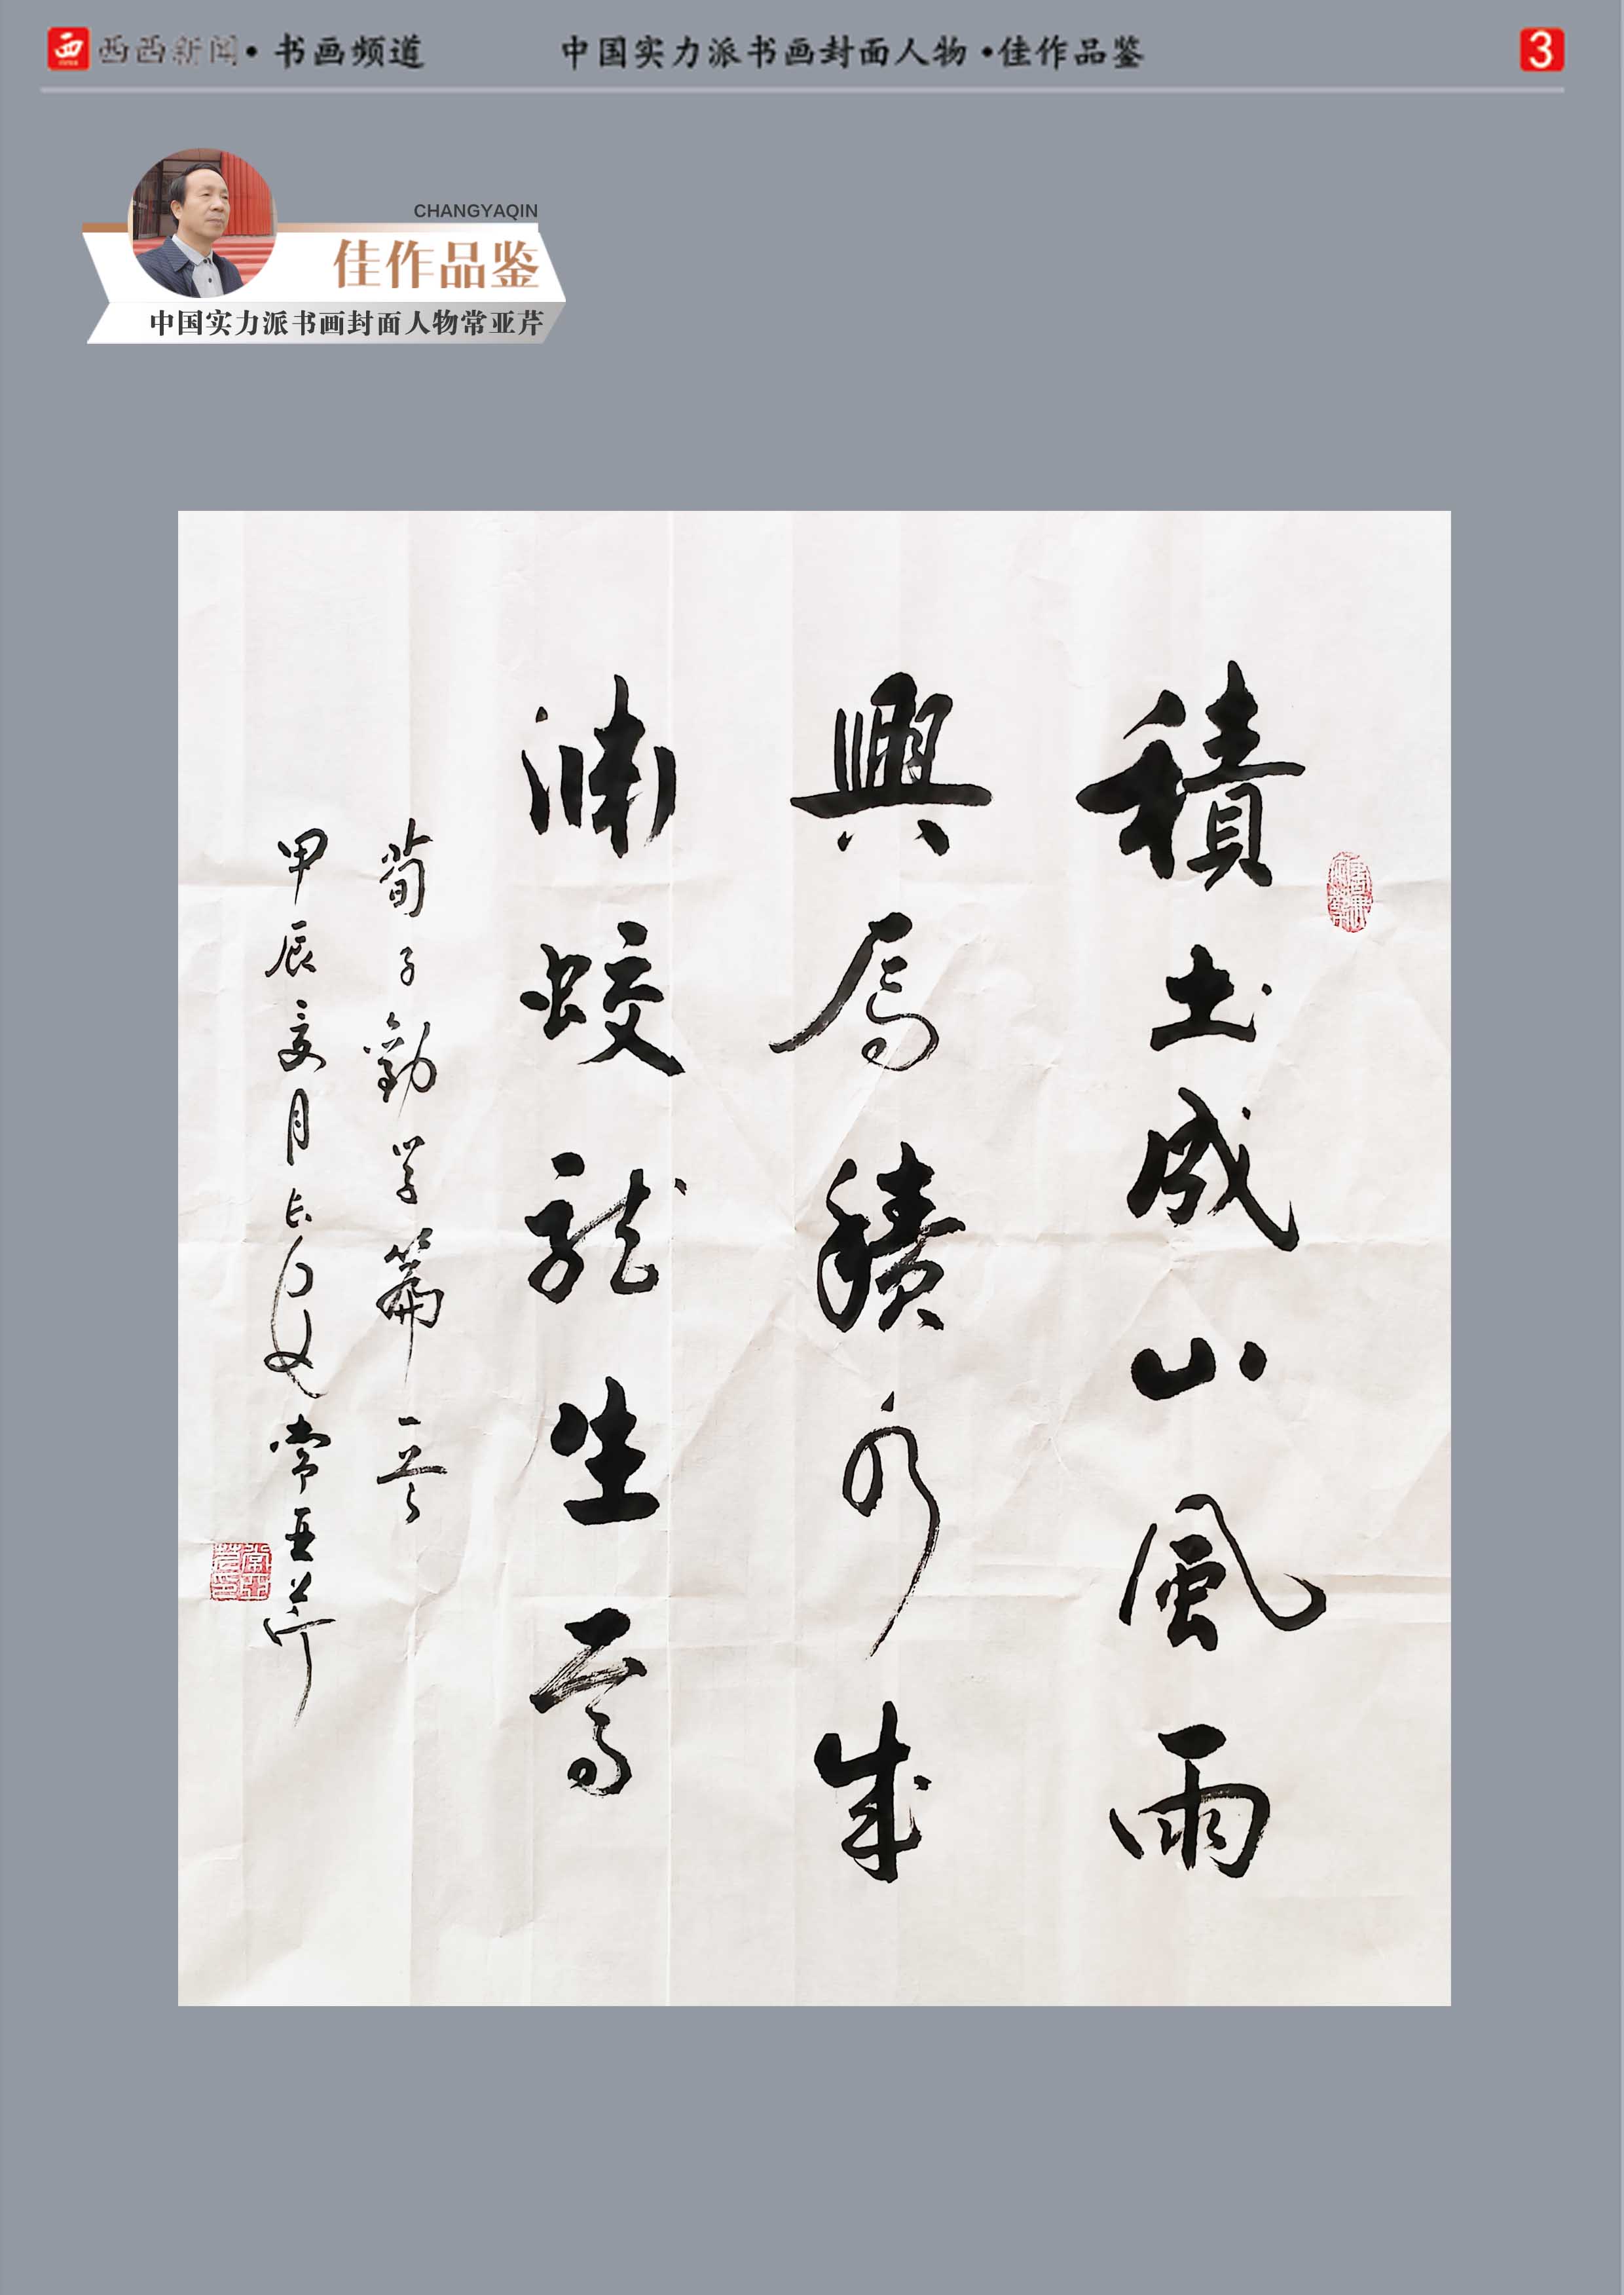 西西新闻• 书画频道
中国实力派书画封面人物 •佳作品鉴
3
CHANGYAQIN
佳作品鉴
中国实力派书画封面人物常亚芹
積土成山風雨
興焉積水成
淵蛟龍生焉
荀子勸学篇
甲辰亥月 常亜芹